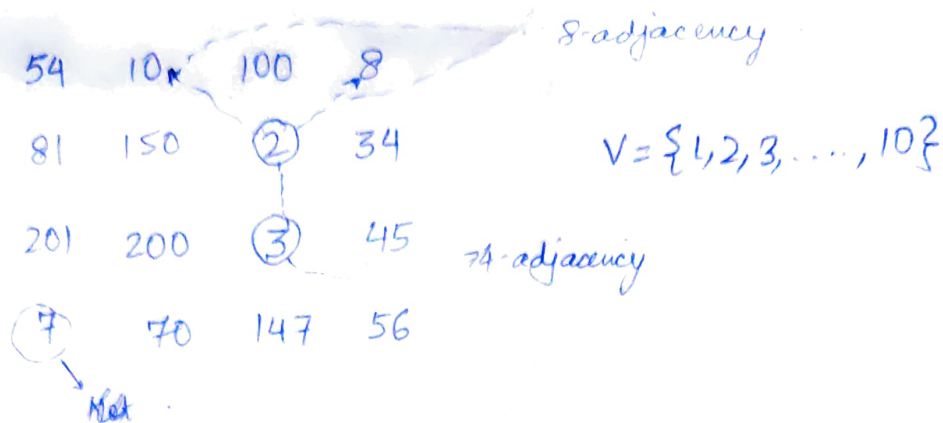 8-adjacency
54 10 100 8
81 150 2 34
V = {1,2,3,....,10}
201 200 3 45
→4-adjacency
7 70 147 56